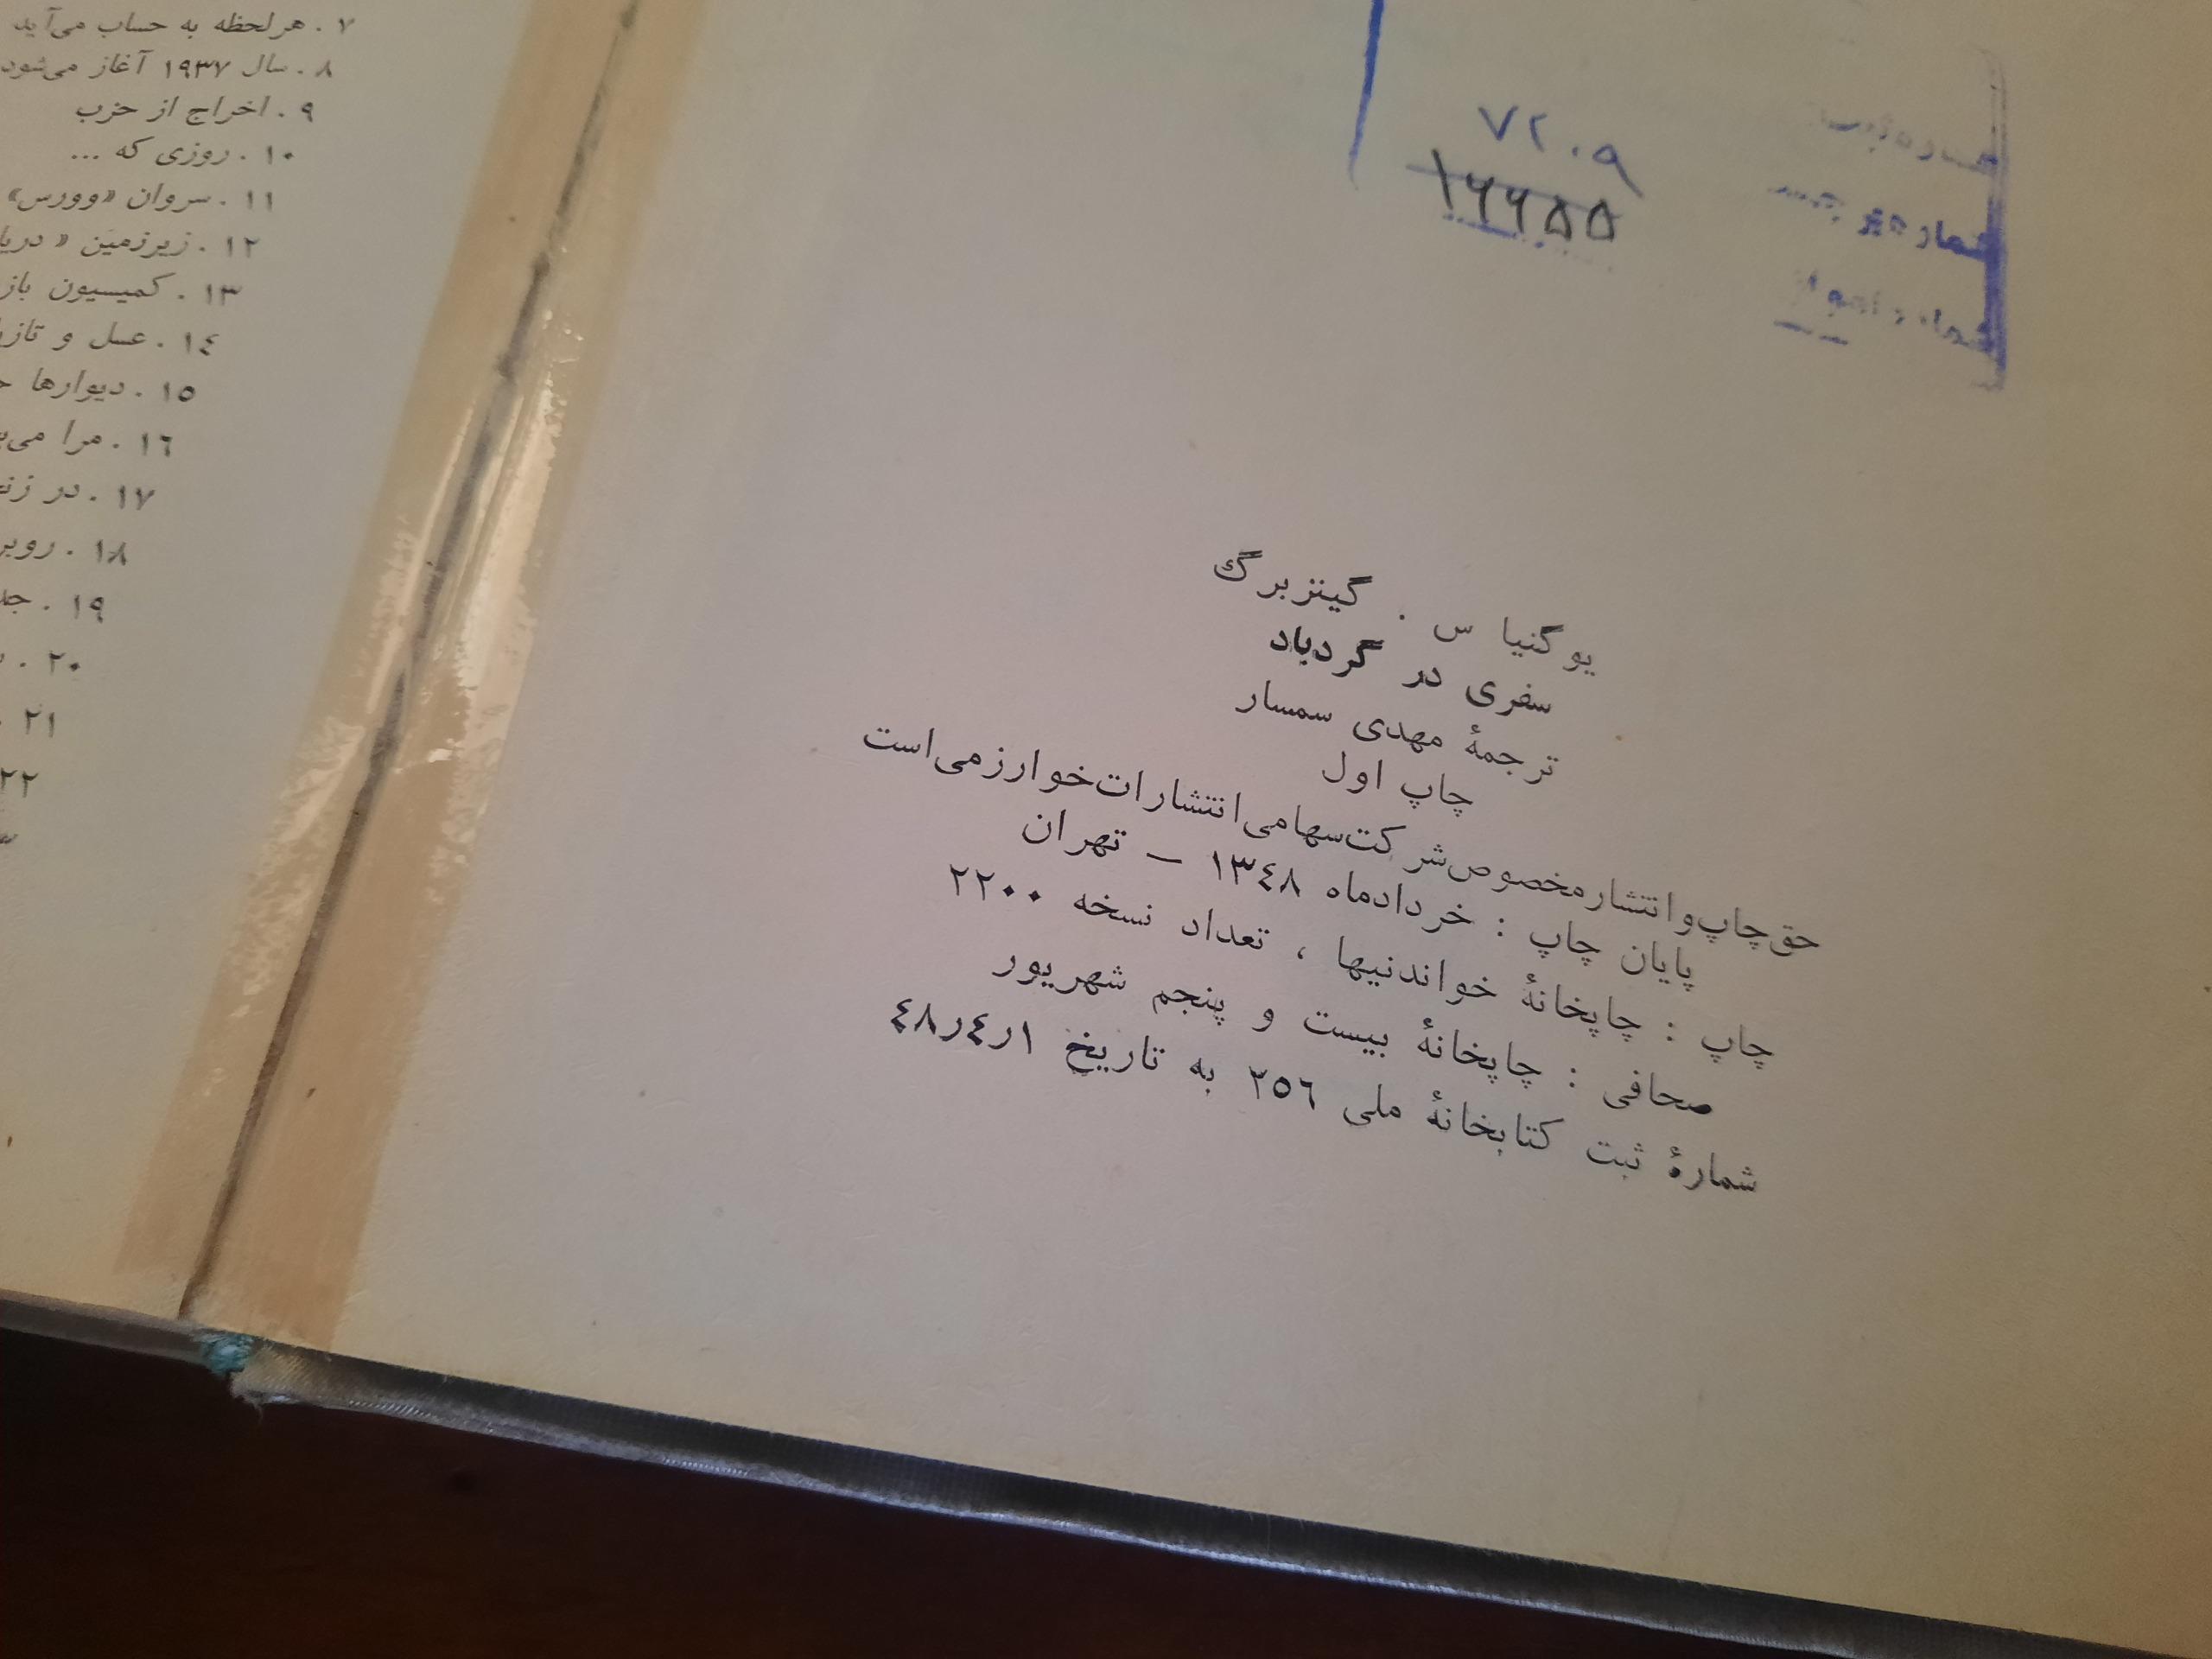 ۷۲۰۹
۱۶۶۵۵
یوگنیا س . گینزبرگ
سفری در گردباد
ترجمهٔ مهدی سمسار
چاپ اول
حق‌چاپ‌وانتشارمخصوص‌شرکت‌سهامی‌انتشارات‌خوارزمی‌است
پایان چاپ : خردادماه ۱۳٤۸ – تهران
چاپ : چاپخانهٔ خواندنیها ، تعداد نسخه ۲۲۰۰
صحافی : چاپخانهٔ بیست و پنجم شهریور
شمارهٔ ثبت کتابخانهٔ ملی ۲٥٦ به تاریخ ۱ر٤ر٤۸
۷ . هرلحظه به حساب می‌آید
۸ . سال ۱۹۳۷ آغاز می‌شود
۹ . اخراج از حزب
۱۰ . روزی که ...
۱۱ . سروان «وورس»
۱۲ . زیرزمین «
۱۳ . کمیسیون
۱٤ . عسل و
۱٥ . دیوارها
۱٦ . مرا
۱۷ . در
۱۸ .
۱۹ .
۲۰ .
۲۱ .
۲۲